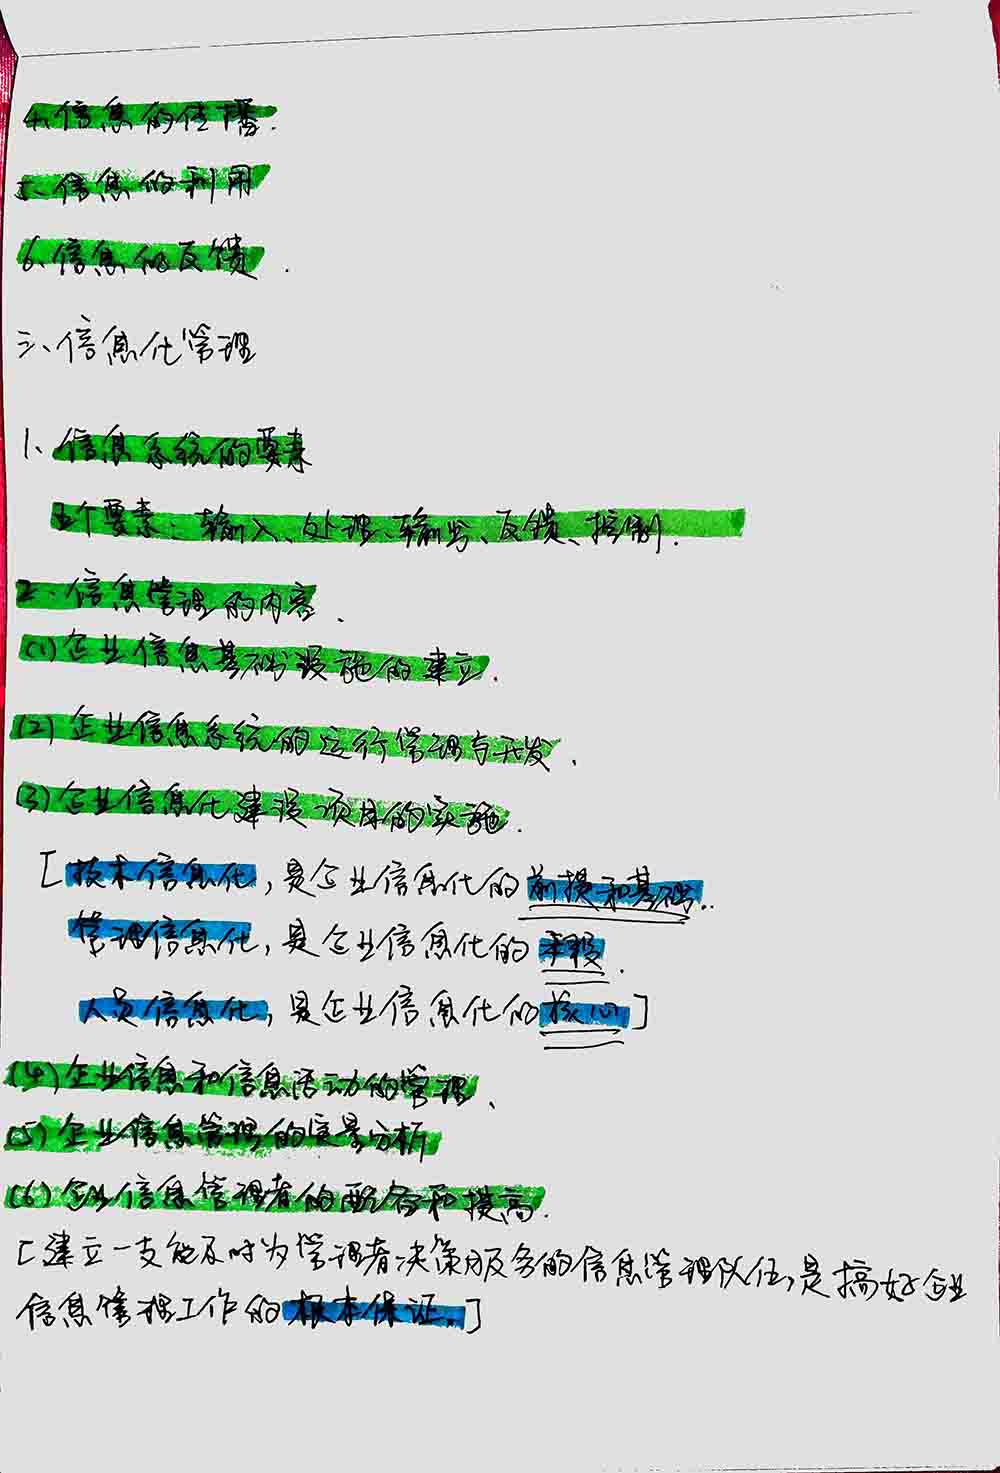 4、信息的传播.
5、信息的利用
6、信息的反馈.
三、信息化管理
1、信息系统的要素
五个要素：输入、处理、输出、反馈、控制.
2、信息管理的内容.
(1)企业信息基础设施的建立.
(2)企业信息系统的运行管理与开发.
(3)企业信息化建设项目的实施.
[技术信息化，是企业信息化的前提和基础..
管理信息化，是企业信息化的手段.
人员信息化，是企业信息化的核心]
(4)企业信息和信息活动的管理、
(5)企业信息管理的定量分析
(6)企业信息管理者的配备和提高.
[建立一支能及时为管理者决策服务的信息管理队伍，是搞好企业
信息管理工作的根本保证.]